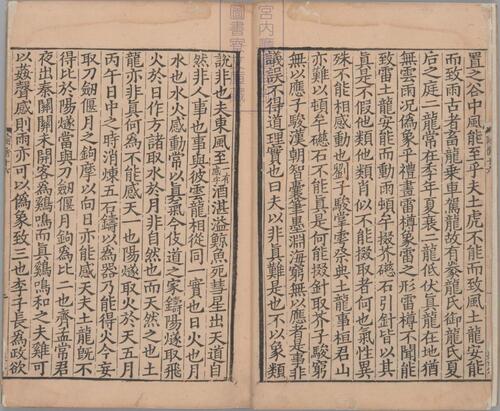 置之谷中風能至乎夫土虎不能而致風土龍安能
而致雨古者畜龍乘車駕龍故有豢龍氏御龍氏夏
后之庭二龍常在季年夏衰二龍低伏眞龍在地猶
無雲雨况僞象乎禮畫雷樽象雷之形雷樽不聞能
致雷土龍安能而動雨頓牟掇芥磁石引針皆以其
眞是不假他類他類肖似不能掇取者何也氣性異
殊不能相感動也劉子駿掌雩祭典土龍事桓君山
亦難以頓牟礠石不能眞是何能掇針取芥子駿窮
無以應子駿漢朝智囊筆墨淵海窮無以應者是事非
議誤不得道理實也曰夫以非眞難是也不以象類
說非也夫東風至酒湛溢鯨魚死彗星出天道自
然非人事也事與彼雲龍相從同一實也日火也月
水也水火感動常以眞氣今伎道之家鑄陽燧取飛
火於日作方諸取水於月非自然也而天然之也土
龍亦非眞何爲不能感天一也陽燧取火於天五月
丙午日中之時消煉五石鑄以爲器乃能得火今妄
取刀劒偃月之鉤摩以向日亦能感天夫土龍旣不
得比於陽燧當與刀劒偃月鉤爲比二也齊孟常君
夜出秦關關未開客爲鷄鳴而眞鷄鳴和之夫雞可
以姦聲感則雨亦可以僞象致三也李子長爲政欲
宮內
圖書寮